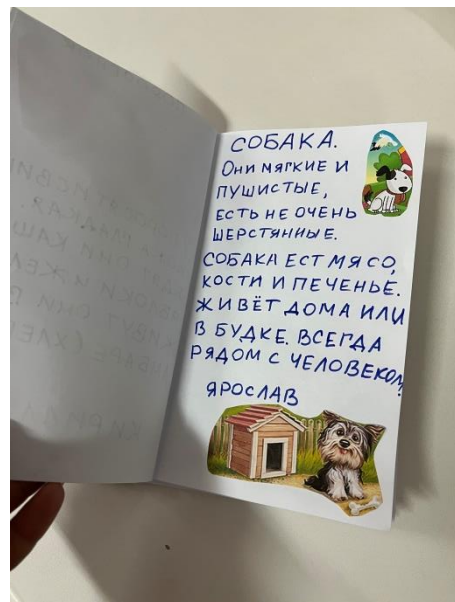 СОБАКА.
ОНИ МЯГКИЕ И
ПУШИСТЫЕ,
ЕСТЬ НЕ ОЧЕНЬ
ШЕРСТЯННЫЕ.
СОБАКА ЕСТ МЯСО,
КОСТИ И ПЕЧЕНЬЕ.
ЖИВЁТ ДОМА ИЛИ
В БУДКЕ. ВСЕГДА
РЯДОМ С ЧЕЛОВЕКОМ.
ЯРОСЛАВ